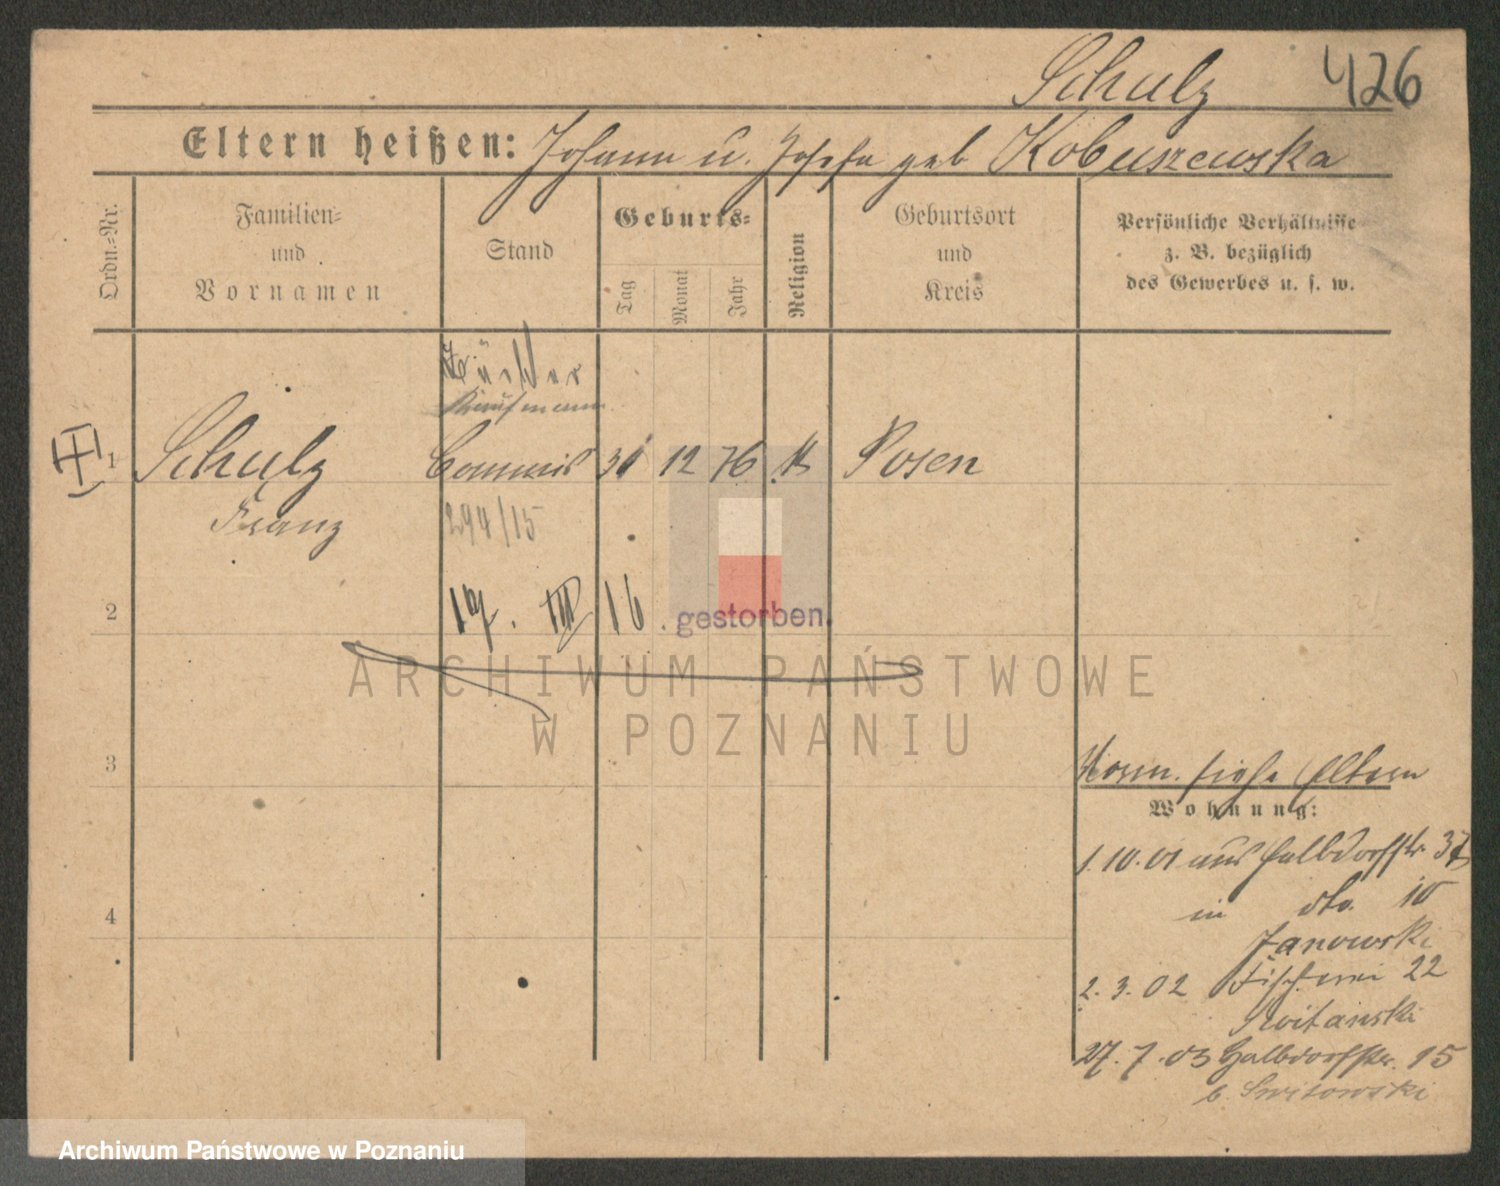 Schulz 426
Eltern heißen: Johann u. Josefa geb Kobuszewska
Ordn.=Nr.
Familien= und Vornamen
Stand
Geburts=
Tag
Monat
Jahr
Religion
Geburtsort und Kreis
Persönliche Verhältnisse
z. B. bezüglich
des Gewerbes u. s. w.
Kaufmann
1 Schulz Commis 31 12 76 K Posen
Franz 294/15
2 19. III 16. gestorben.
ARCHIWUM PAŃSTWOWE
W POZNANIU
3
Vorm. siehe Eltern
Wohnung:
1.10.01 aus Halbdorfstr. 37
in dto. 10
4
Janowski
2.3.02 Fischerei 22
27.7.03 Halbdorfstr. 15
b. Switowski
Archiwum Państwowe w Poznaniu